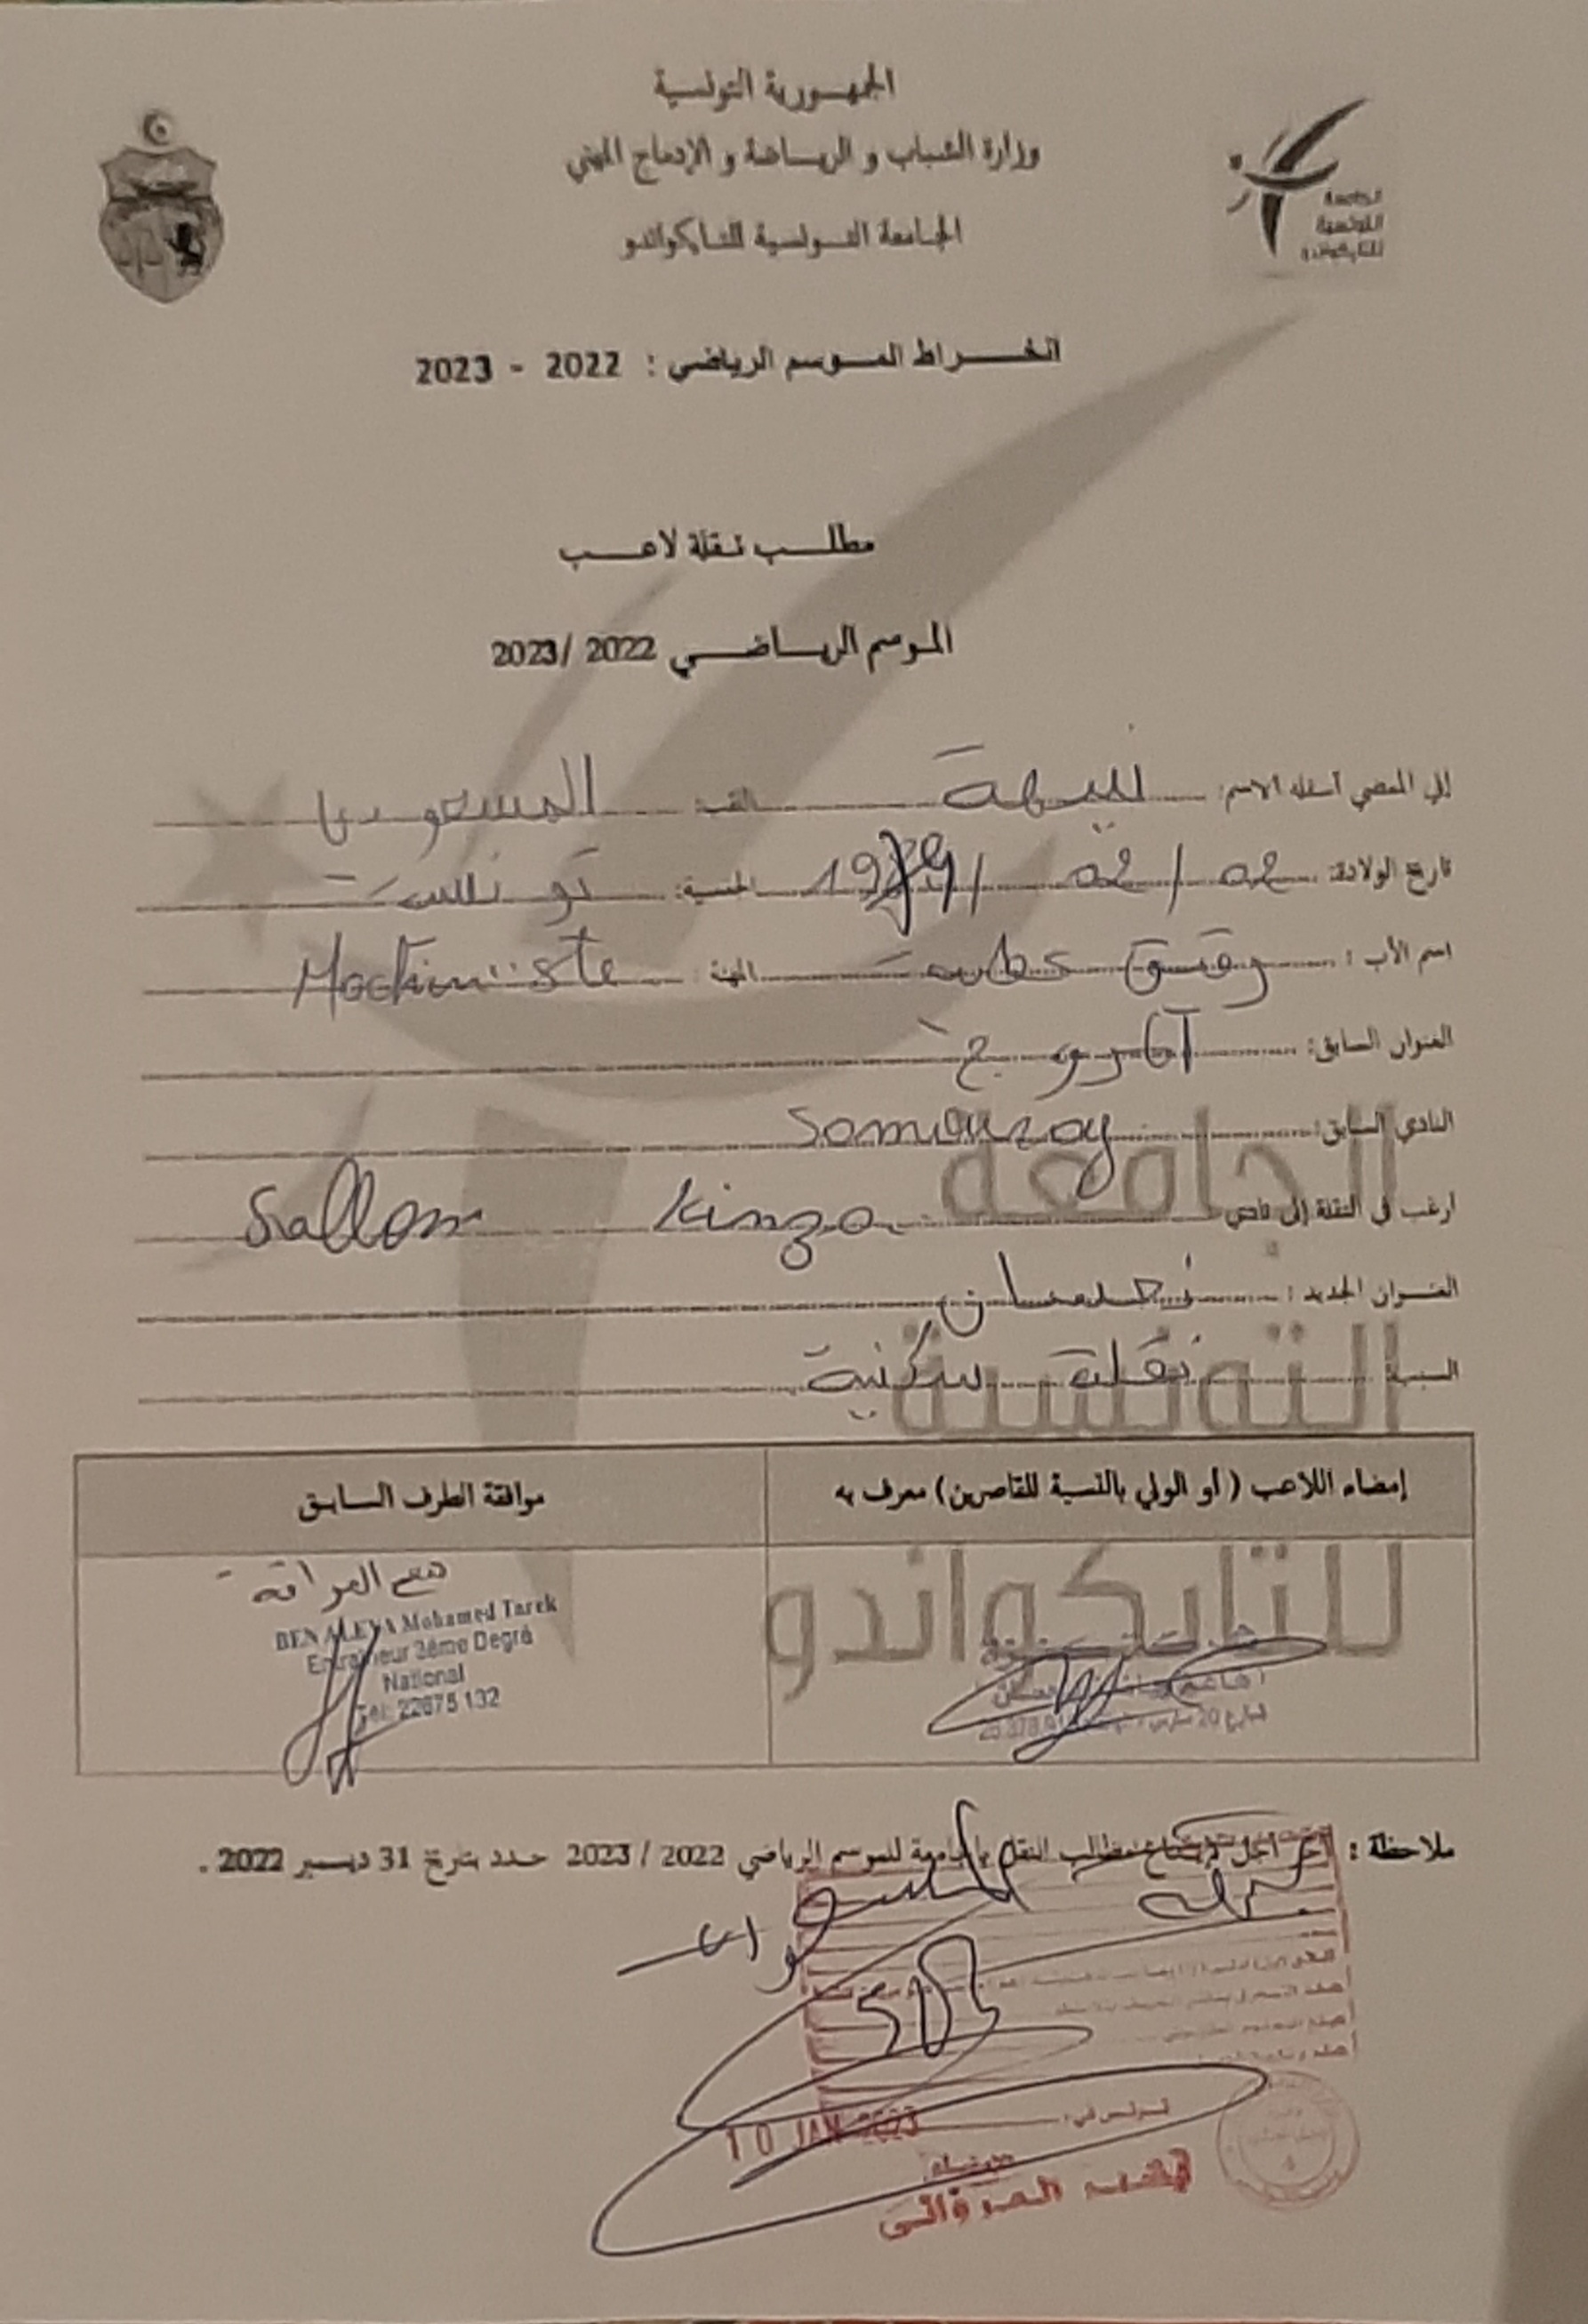 الجمهورية التونسية
وزارة الشباب و الرياضة و الإدماج المهني
الجامعة التونسية للتايكواندو
الجامعة
التونسية
للتايكواندو
انخراط الموسم الرياضي : 2022 - 2023
مطلب نقلة لاعب
الموسم الرياضي 2022 /2023
إني الممضي أسفله الاسم: نبيهة اللقب: المسعودي
تاريخ الولادة: 02 / 02 / الجنسية: تونسية
اسم الأب : المهنة : Machiniste
العنوان السابق:
النادي السابق: Samouray
ارغب في النقلة إلى نادي Kinza Sallem
العنوان الجديد : نعسان
السبب: نقلة سكنية
الجامعة
التونسية
للتايكواندو
إمضاء اللاعب ( أو الولي بالنسبة للقاصرين) معرف به
موافقة الطرف السابق
مع الموافقة
BEN ALEYA Mohamed Tarek
Entraîneur 3ème Degré
National
Tel: 22675 132
ملاحظة : آخر أجل لإيداع مطالب النقل بالجامعة للموسم الرياضي 2022 / 2023 حدد بتاريخ 31 ديسمبر 2022 .
تونس في:
10 JAN 2023